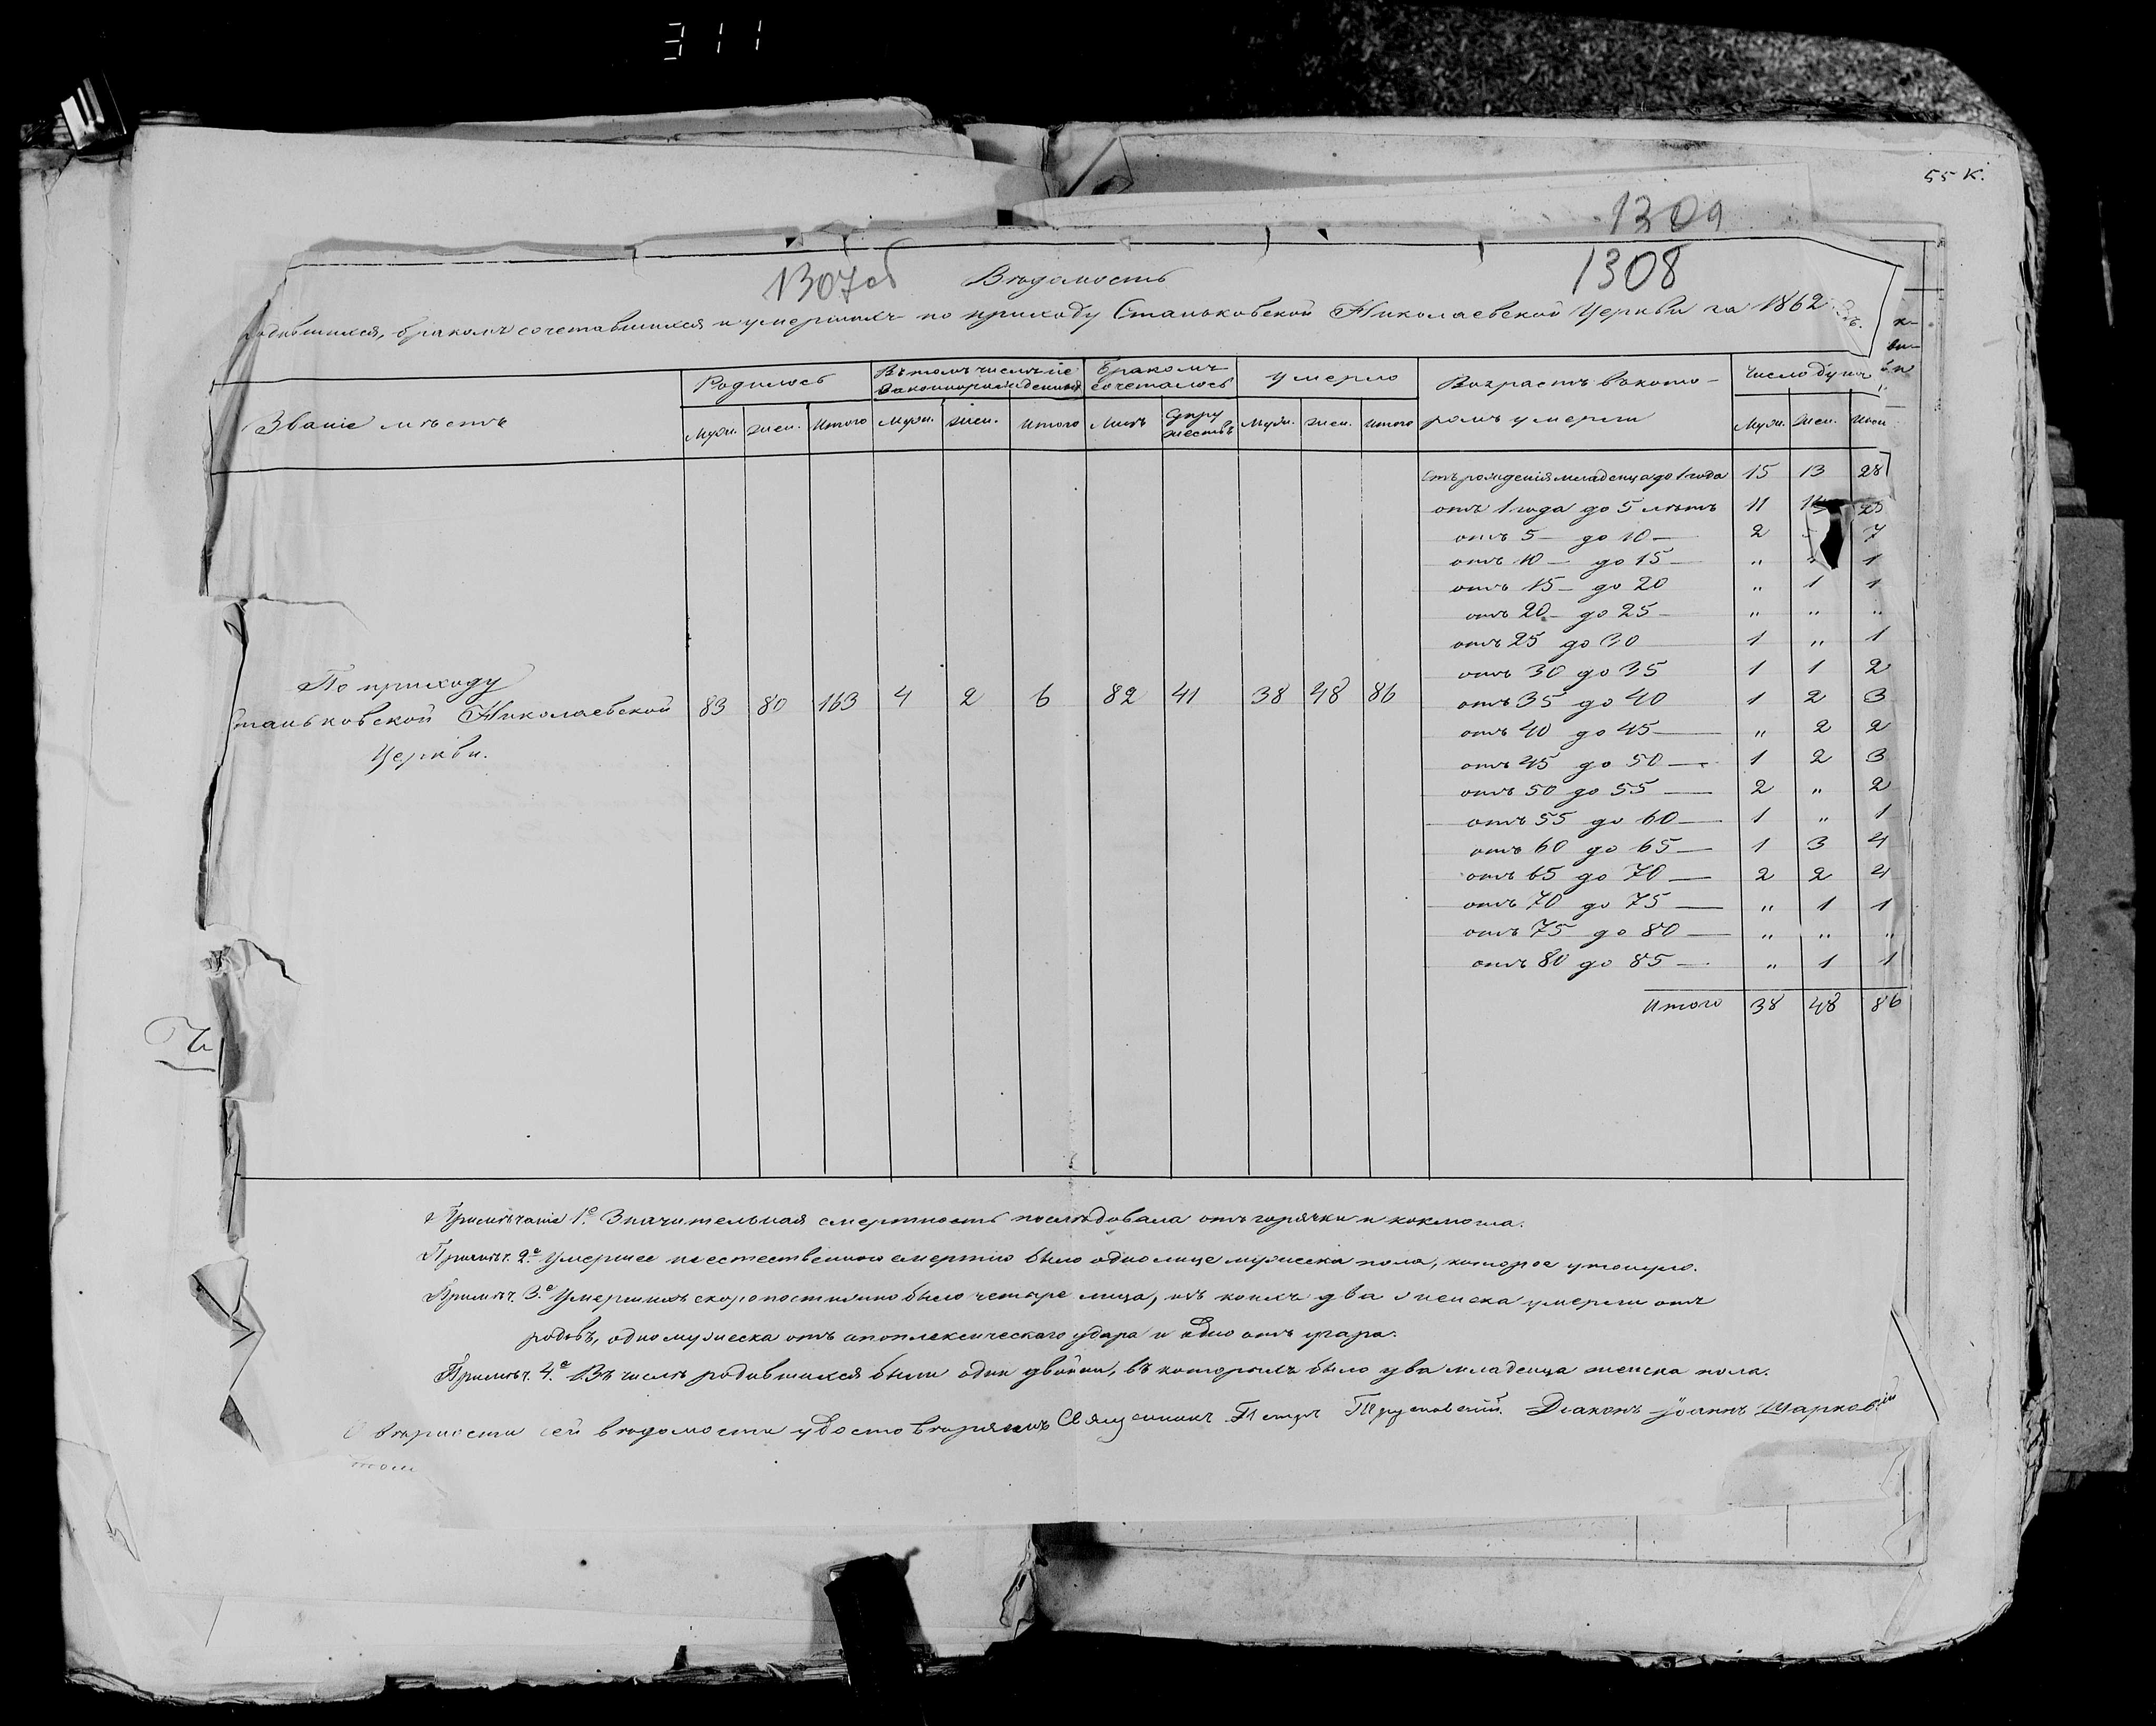 311
55 К.
1309
1307об Вѣдомость 1308
родившихся, бракомъ сочетавшихся и умершихъ по приходу Станьковской Николаевской Церкви за 1862
Званіе мѣстъ
Родилось
Муж. Жен. Итого
Въ томъ числѣ не законнорожденныхъ
Муж. Жен. Итого
Бракомъ сочеталось
Лицъ Супружествъ
Умерло
Муж. Жен. Итого
Возрастъ въ кото-
ромъ умерли
Число душъ
Муж. Жен.
По приходу
Станьковской Николаевской
Церкви.
83 80 163 4 2 6 82 41 38 48 86
Отъ рожденія младенца до 1 года 15 13 28
отъ 1 года до 5 лѣтъ 11
отъ 5 — до 10 — 2 7
отъ 10 — до 15 — „ 1
отъ 15 — до 20 „ 1 1
отъ 20 — до 25 — „ „ „
отъ 25 до 30 1 „ 1
отъ 30 до 35 1 1 2
отъ 35 до 40 1 2 3
отъ 40 до 45 — „ 2 2
отъ 45 до 50 — 1 2 3
отъ 50 до 55 — 2 „ 2
отъ 55 до 60 — 1 „ 1
отъ 60 до 65 — 1 3 4
отъ 65 до 70 — 2 2 4
отъ 70 до 75 — „ 1 1
отъ 75 до 80 — „ „ „
отъ 80 до 85 — „ 1 1
Итого 38 48 86
Примѣчаніе 1е. Значительная смертность послѣдовала отъ горячки и коклюша.
Примѣч. 2е. Умершее неестественною смертію было одно лице мужеска пола, которое утонуло.
Примѣч. 3е. Умершихъ скоропостижно было четыре лица, изъ коихъ два женска умерли отъ
родовъ, одно мужеска отъ апоплексическаго удара и одно отъ угара.
Примѣч. 4е. Въ числѣ родившихся были одни двойни, въ которыхъ было два младенца женска пола.
О вѣрности сей вѣдомости удостовѣряемъ Священникъ Петръ Діаконъ Іоаннъ